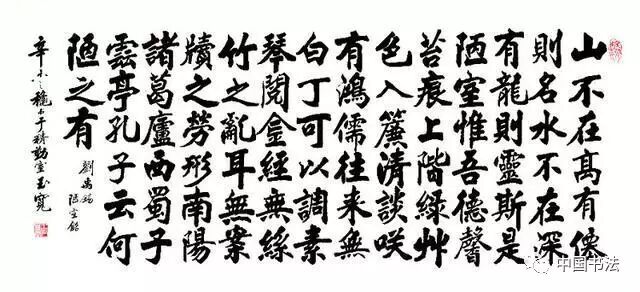 山不在高有僊
則名水不在深
有龍則靈斯是
陋室惟吾德馨
苔痕上階綠艸
色入簾清談咲
有鴻儒往来無
白丁可以調素
琴閱金經無絲
竹之亂耳無案
牘之勞形南陽
諸葛廬西蜀子
雲亭孔子云何
陋之有
劉禹錫
陋室銘
辛 之穐 精勤 玉寬
中国书法